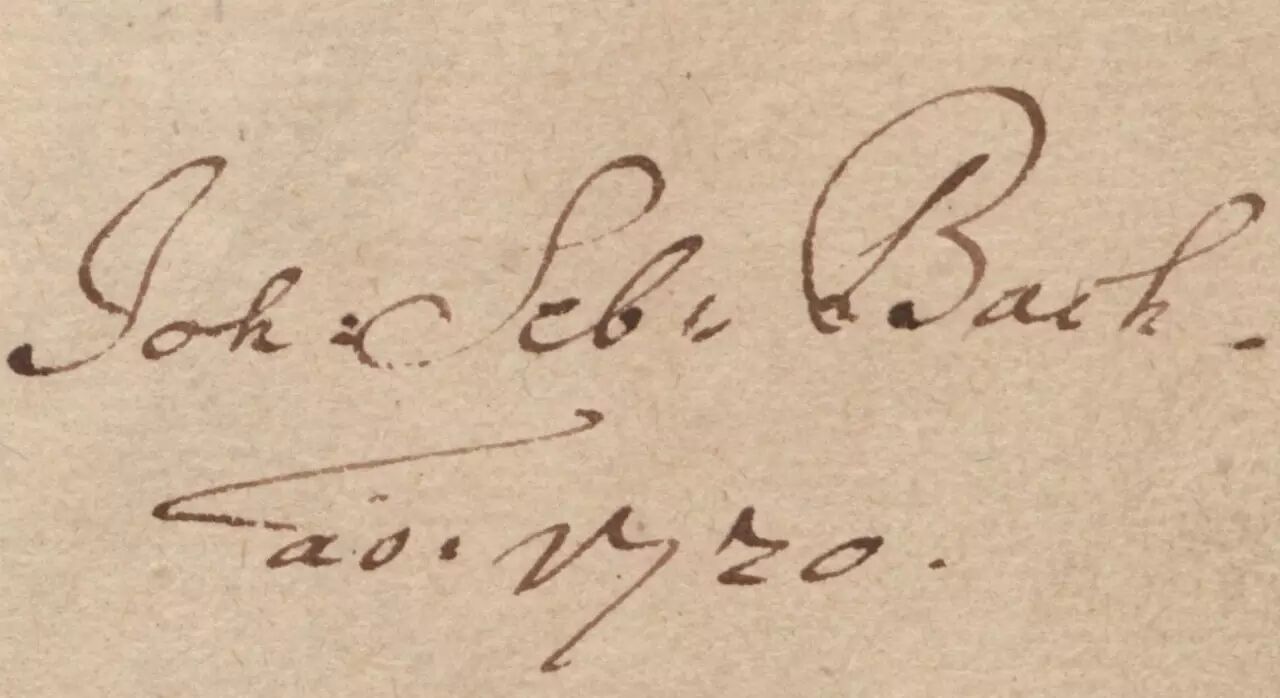 Joh: Seb: Bach.
aõ. 1720.